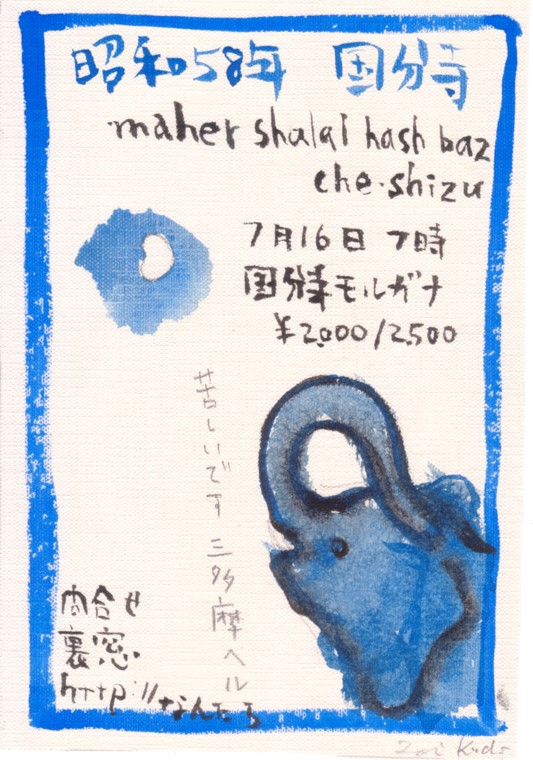 昭和58年 国分寺
maher shalal hash baz
che-shizu
7月16日 7時
国分寺モルガナ
¥2000/2500
苦しいです三多摩ヘル
問合せ
裏窓
http://なんたら